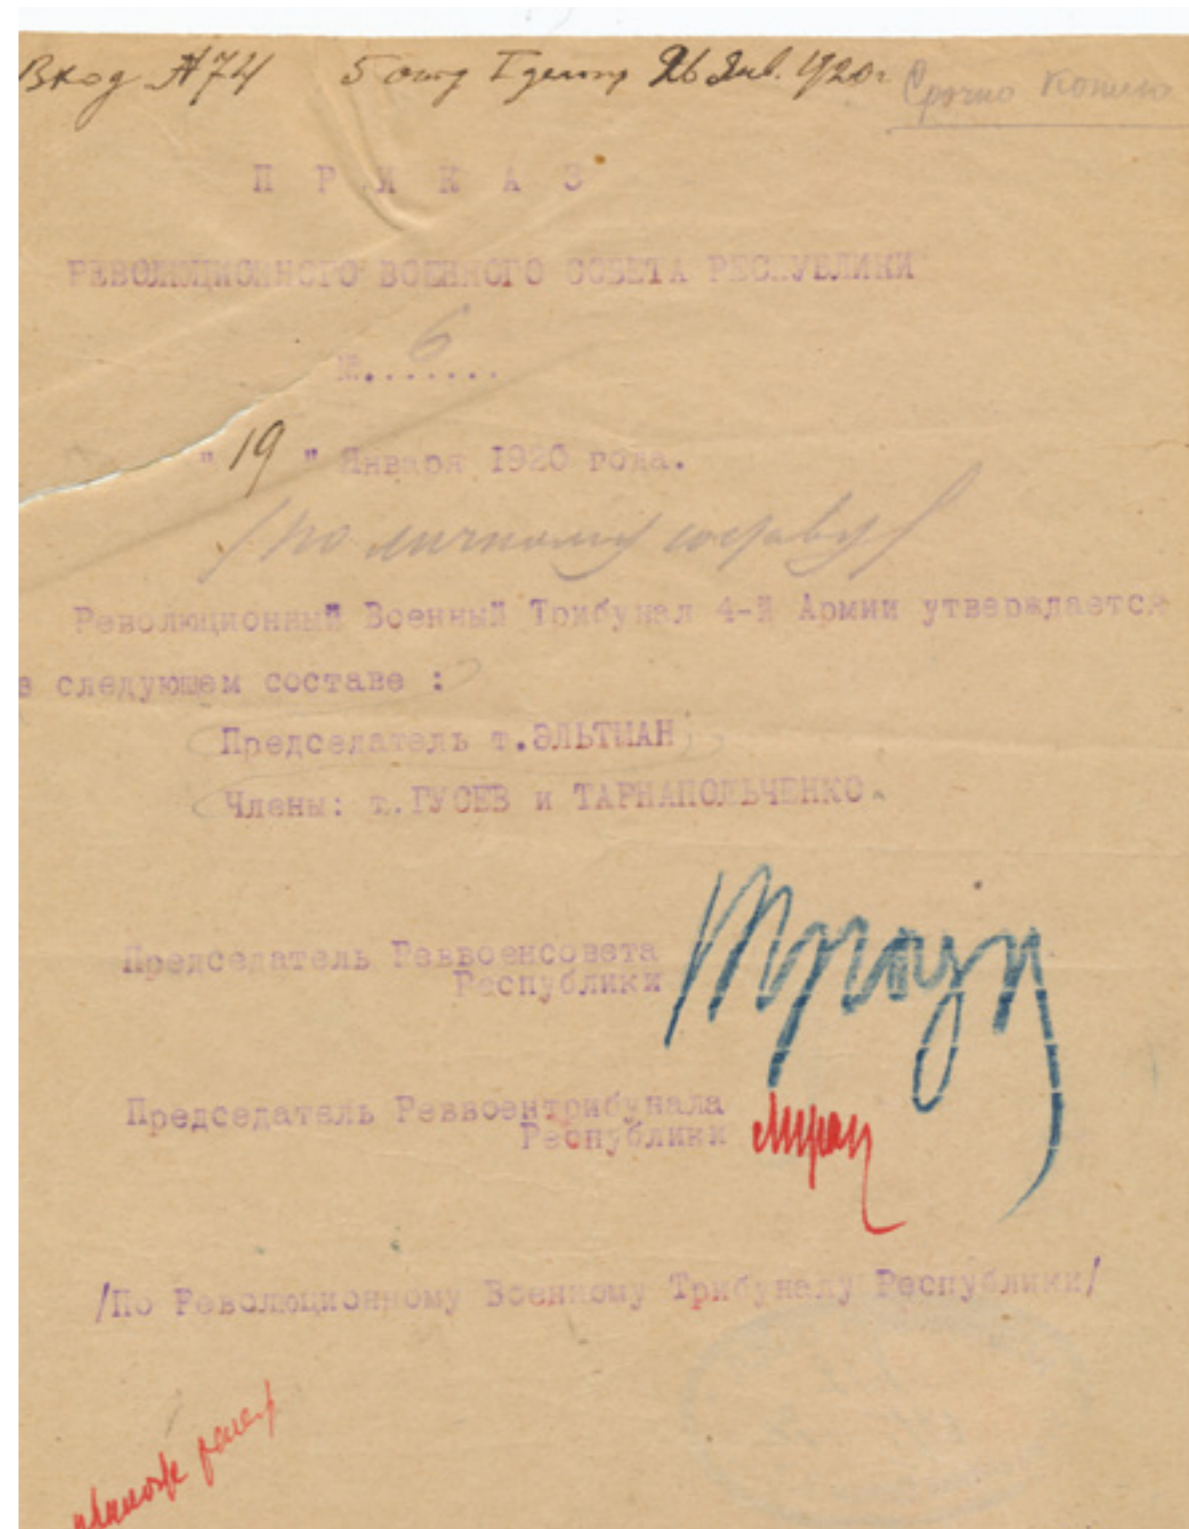 Вход №74 5 отд I 26 Янв. 1920г Срочно Копию
П Р И К А З
РЕВОЛЮЦИОННОГО ВОЕННОГО СОВЕТА РЕСПУБЛИКИ
№.......6
"19" Января 1920 года.
/по личному составу/
Революционный Военный Трибунал 4-й Армии утверждается
в следующем составе :
Председатель т.ЭЛЬТМАН
Члены: т.ГУСЕВ и ТАРНАПОЛЬЧЕНКО.
Председатель Реввоенсовета
Республики
Троцк
Председатель Реввоентрибунала
Республики
/По Революционному Военному Трибуналу Республики/